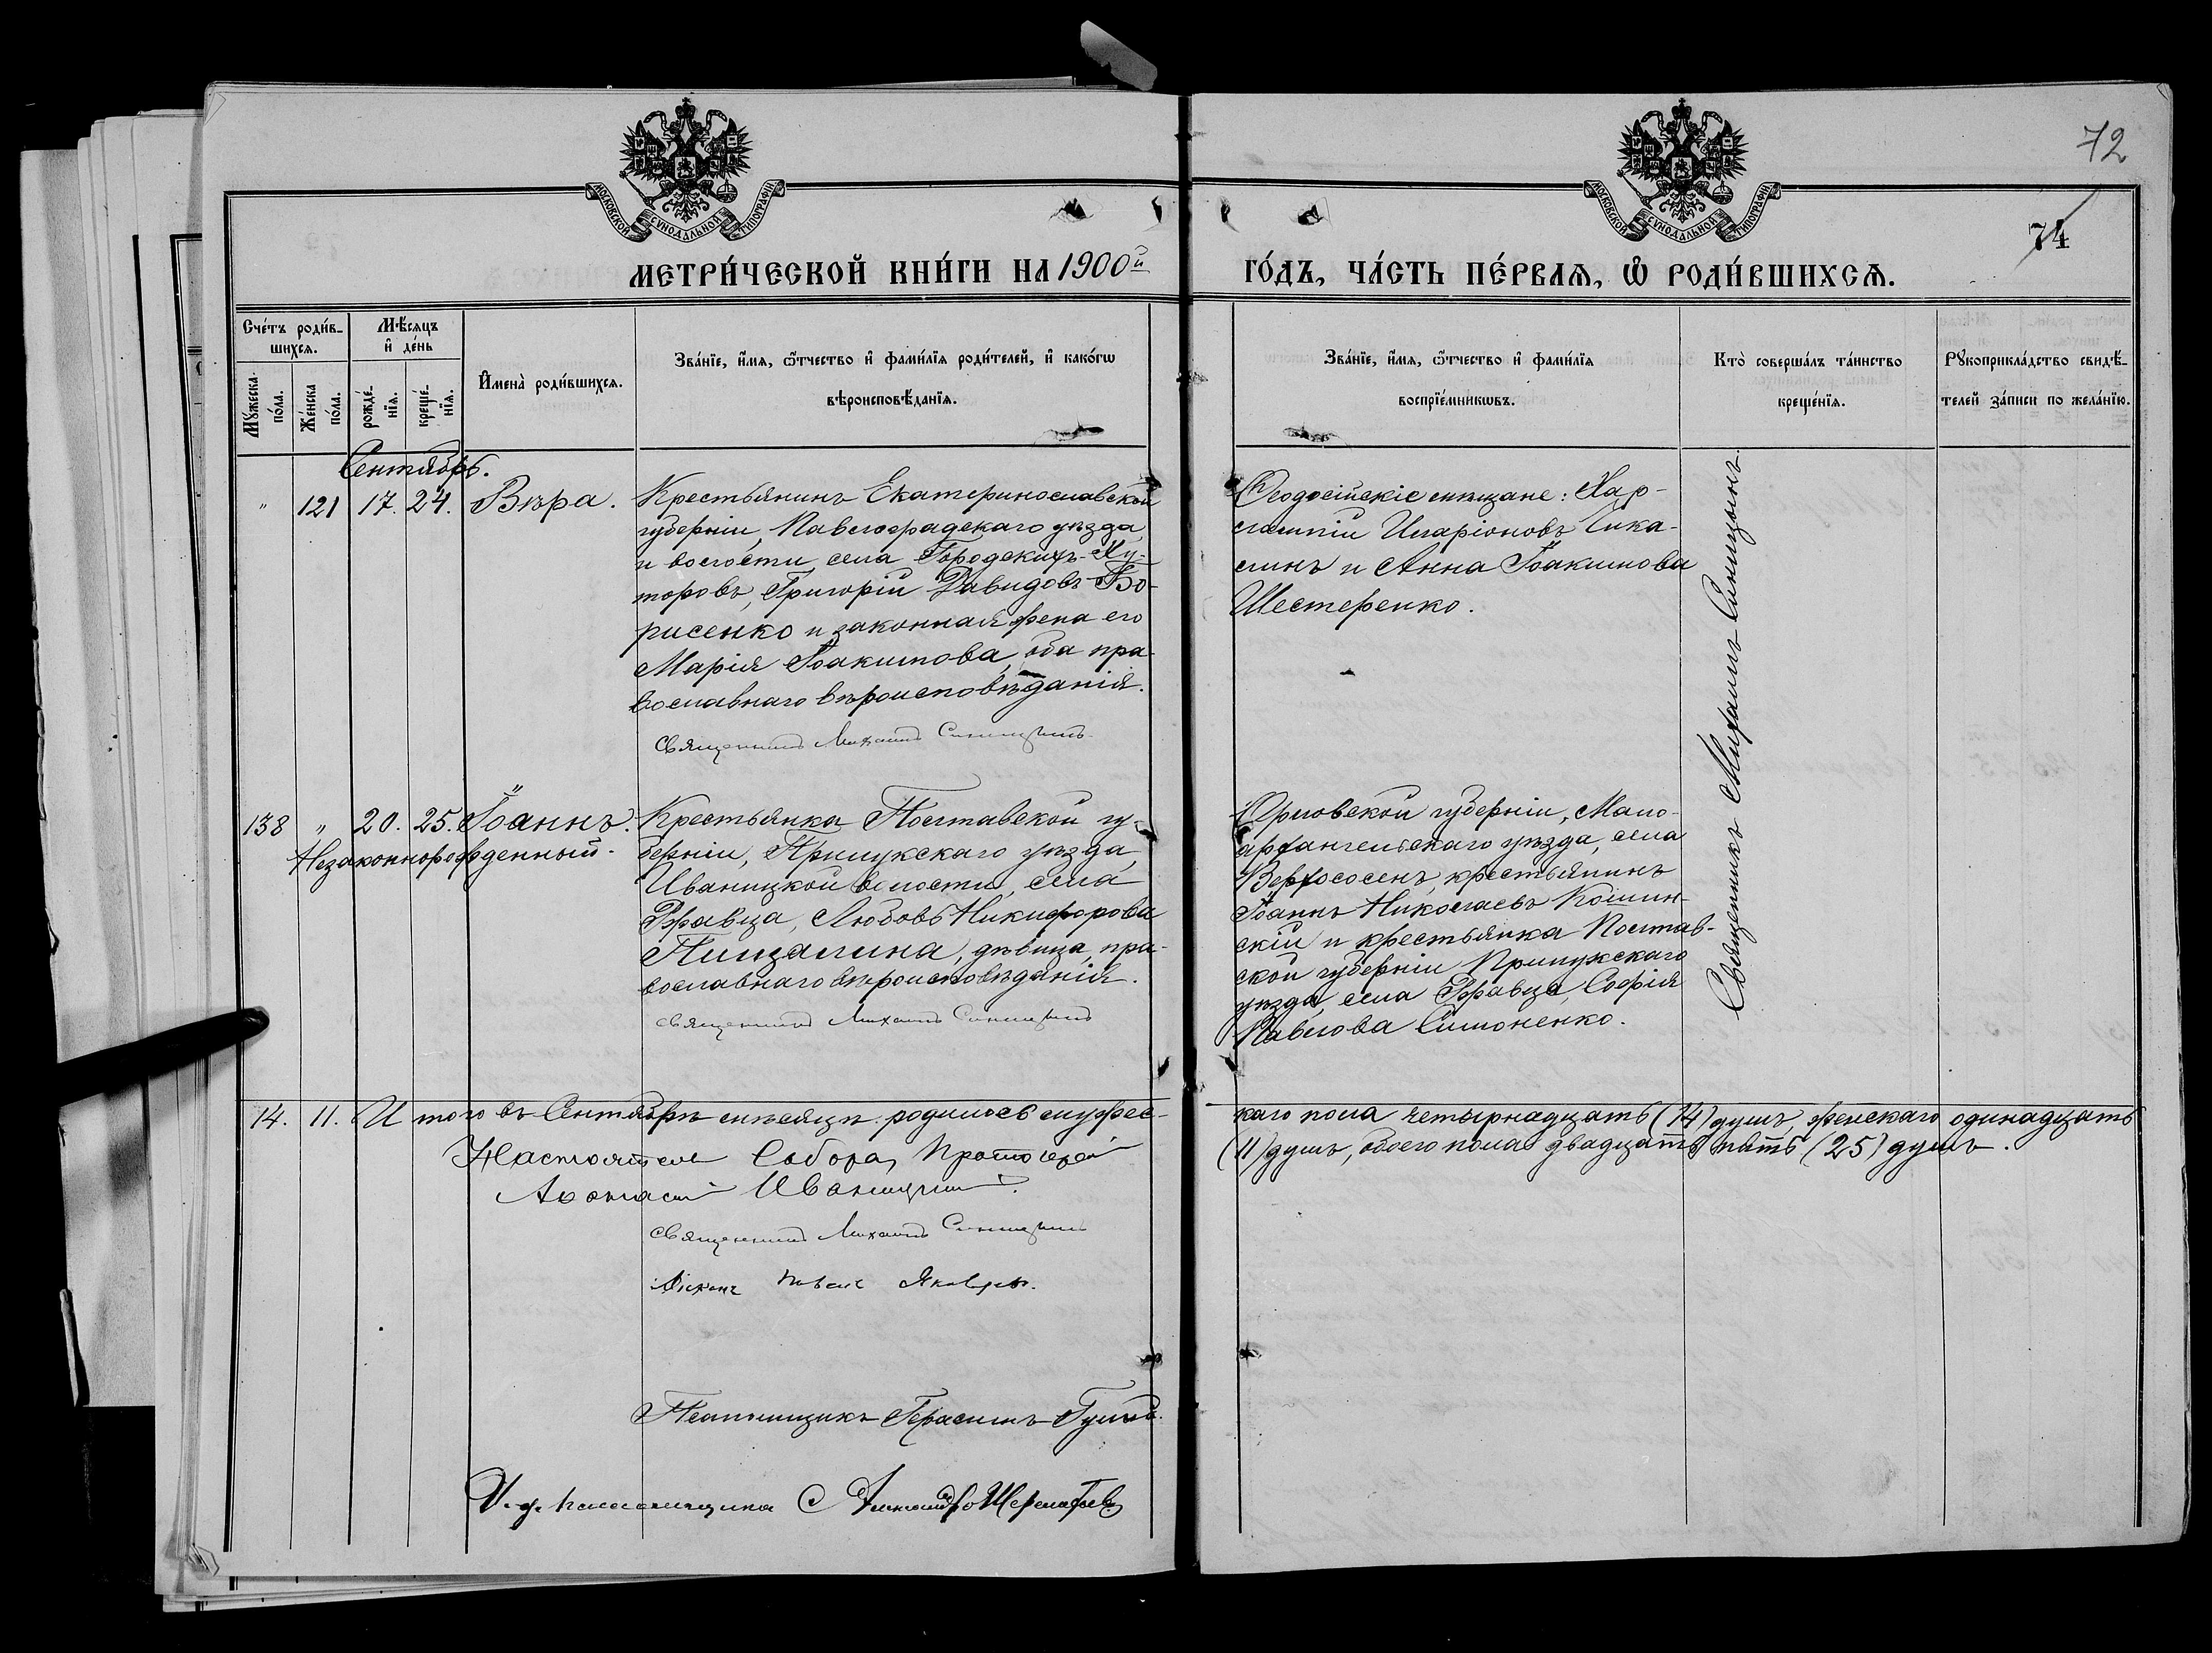 72
74
МОСКОВСКОЙ СѴНОДАЛЬНОЙ ТИПОГРАФІИ
МОСКОВСКОЙ СѴНОДАЛЬНОЙ ТИПОГРАФІИ
МЕТРИ́ЧЕСКОЙ КНИ́ГИ НА 1900й
ГО́ДЪ, ЧА́СТЬ ПЕ́РВАѦ, Ѽ РОДИ́ВШИХСѦ.
Счётъ роди́в-
шихсѧ.
Мꙋ́жеска по́ла.
Же́нска по́ла.
Мѣ́сѧцъ
и҆ де́нь
рожде́-
нїѧ.
креще́-
нїѧ.
И҆мена̀ роди́вшихсѧ.
Зва́нїе, и҆́мѧ, ѻ҆́тчество и҆ фами́лїѧ роди́телей, и҆ како́гѡ
вѣроисповѣ́данїѧ.
Зва́нїе, и҆́мѧ, ѻ҆́тчество и҆ фами́лїѧ
воспрїе́мникѡвъ.
Кто̀ соверша́лъ та́инство
креще́нїѧ.
Рꙋкоприкла́дство свидѣ́-
телей за́писи по жела́нїю.
Сентябрь.
" 121 17. 24. Вѣра.
Крестьянинъ Екатеринославской
губерніи, Павлоградскаго уѣзда
и волости, села Городскихъ-Ху-
торовъ, Григорій Давидовъ Бо-
рисенко и законная жена его
Марія Іоакимова, оба пра-
вославнаго вѣроисповѣданія.
Священникъ Михаилъ Синицынъ
Ѳеодосійскіе мѣщане: Хар-
лампій Иларіоновъ Чика-
линъ и Анна Іоакимова
Шестеренко.
Священникъ Михаилъ Синицынъ
138 " 20. 25. Іоаннъ.
Незаконнорожденный.
Крестьянка Полтавской гу-
берніи, Прилукскаго уѣзда,
Иваницкой волости, села
Ржавца, Любовь Никифорова
Пищалина, дѣвица, пра-
вославнаго вѣроисповѣданія.
Священникъ Михаилъ Синицынъ
Орловской губерніи, Мало-
архангельскаго уѣзда, села
Верхососенъ, крестьянинъ
Іоаннъ Николаевъ Кошин-
скій и крестьянка Полтав-
ской губерніи Прилукскаго
уѣзда, села Ржавца, Софія
Павлова Симоненко.
14. 11. Итого въ Сентябрѣ мѣсяцѣ родилось мужес-
каго пола четырнадцать (14) душъ, женскаго одинадцать
(11) душъ, обоего пола двадцать пять (25) душъ.
Настоятель Собора, Протоіерей
Иваницкій
Священникъ Михаилъ Синицынъ
Діаконъ Павелъ
Псаломщикъ Герасимъ
И. д. псаломщика